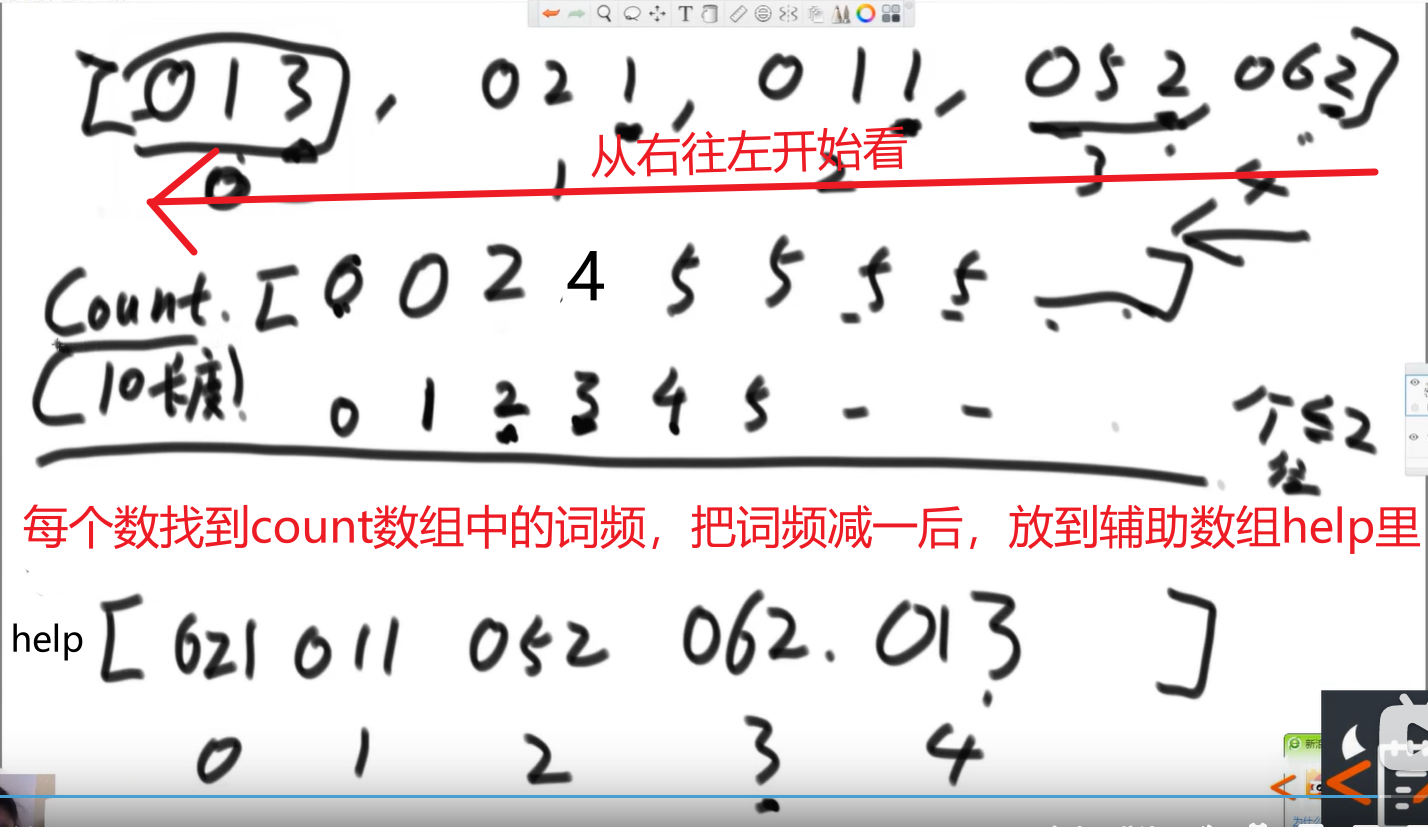 [013, 021, 011, 052 062]
从右往左开始看
0 1 2 3 4
Count. [0 0 2 4 5 5 5 5 ]
(10长度) 0 1 2 3 4 5 - - 个≤2
每个数找到count数组中的词频，把词频减一后，放到辅助数组help里
help [621 011 052 062. 013 ]
0 1 2 3 4